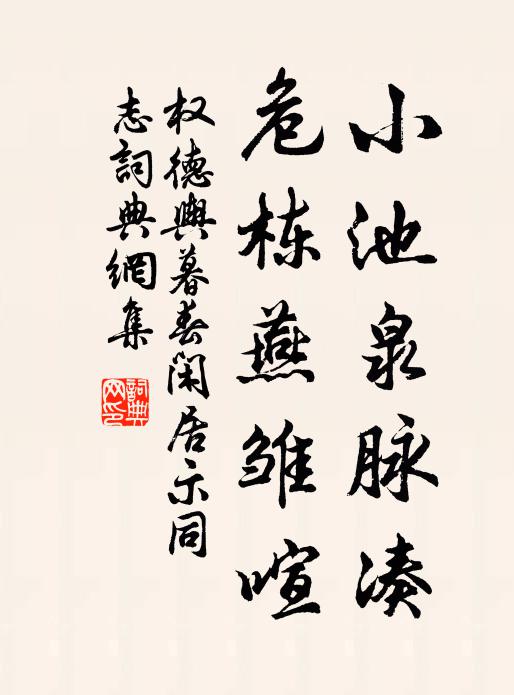 小池泉脉凑
危栋燕雏喧
权德舆暮春闲居示同
志詞典網集
詞典网印